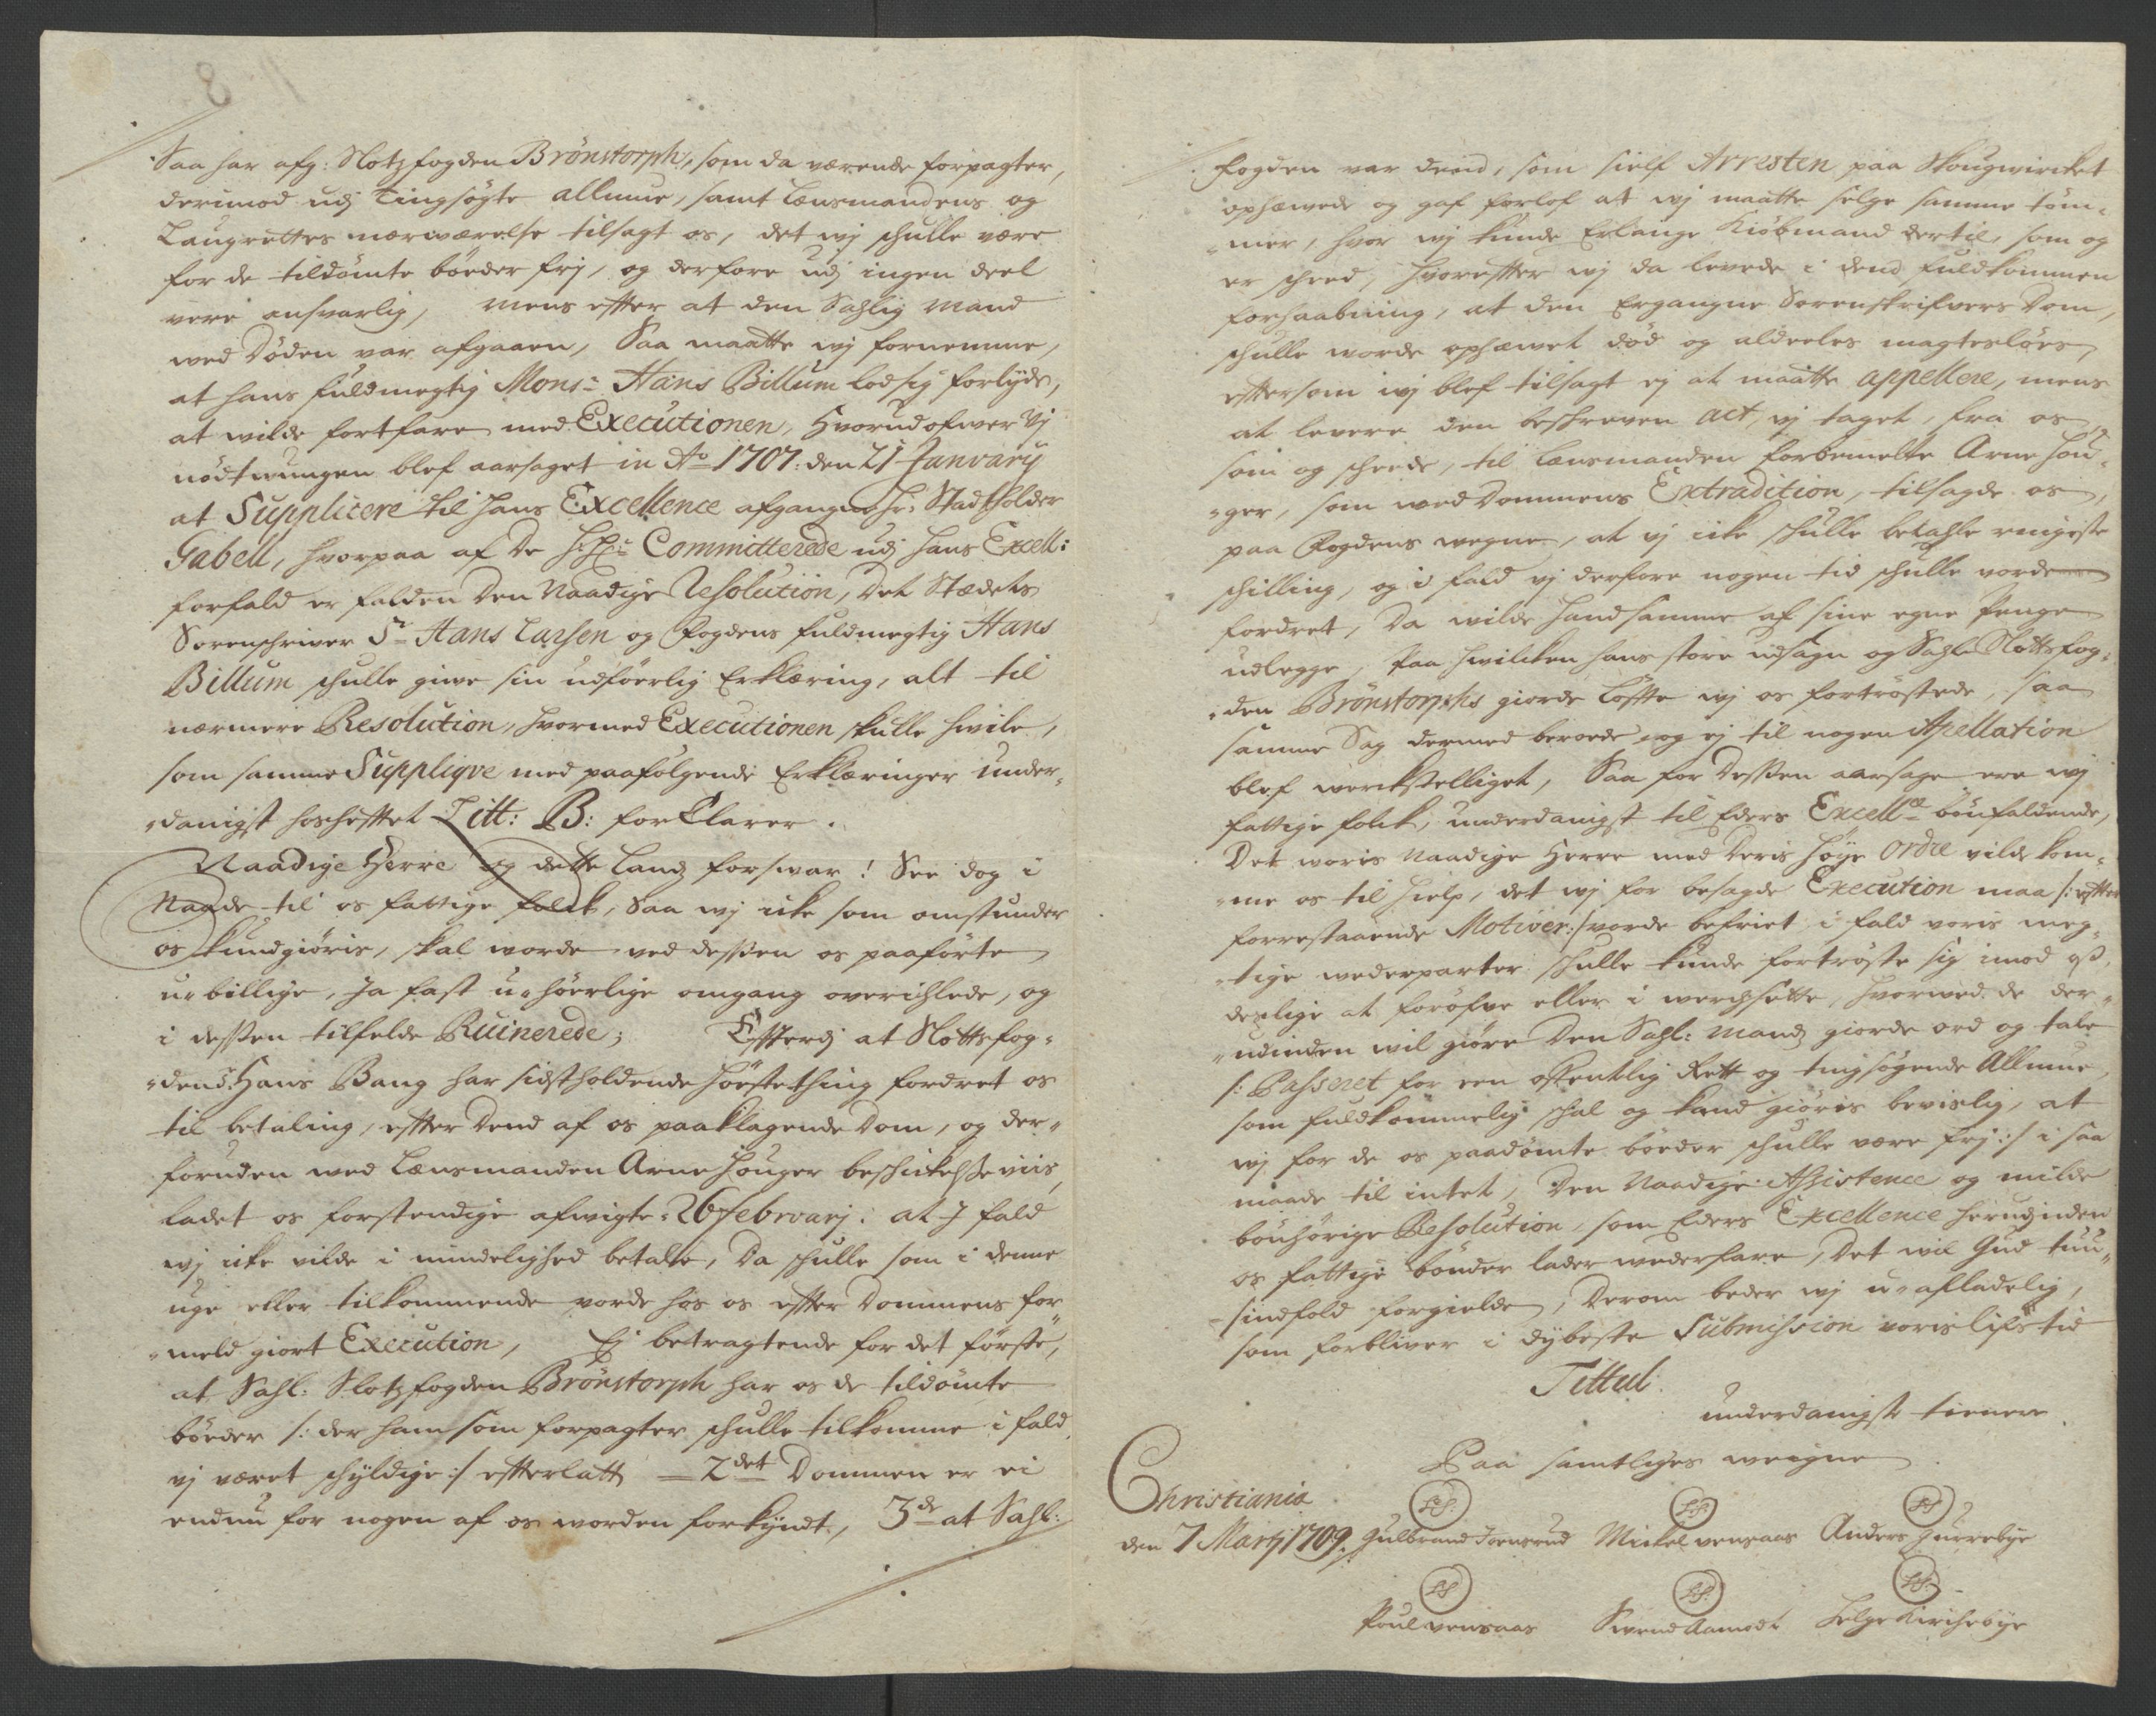 Saa har afg: Slotzfogden Brönstorph, som da værende forpagter,
derimod udj Tingsøgte allmue, samt Lænsmandens og
Laugrettes nærwærelse tilsagt os, det wj schulle være
for de tildömte böeder frj, og derfore udj ingen deel
vere ansvarlig, Mens effter at den Sahlig Mand
wed Döden var afgaaen, Saa maatte wj fornemme,
at hans fuldmegtig Monsr Hans Billum lod sig forlyde,
at wilde fortfare med Executionen, Hvorudofwer Vj
nödtwungen blef aarsaget in Ao 1707: den 21 Januarij
at Supplicere til Hans Excellence afgangne Hr: Stadtholder
Gabell, hvorpaa af De H: Hr: Committerede udj Hans Excell:
forfald er falden Den Naadige Resolution, Det Stædets
Sorenschriver Sr Hans Larsen og Fogdens fuldmegtig Hans
Billum schulle giwe sin udföerlig Erklæring, alt til
nærmere Resolution, hvormed Executionen skulle hwile,
som samme Suppliqve med paafølgende Erklæringer under-
danigst hoshefftet Litt: B: forklarer.
Naadige Herre og dette Landz forswar! See dog i
Naade til os fattige folck, Saa wj icke som omstunder
os kundgiöris, skal worde ved dessen os paaförte
u-billige, Ja fast u-höerlige omgang overichlede, og
i dessen tilfelde Ruinerede; Effterdj at Slottsfog-
den Sr: Hans Bang har sidstholdende Höstething fordret os
til betaling, effter Dend af os paaklagende Dom, og der-
foruden med Lænsmanden Arne Houger beskickelsse viis,
ladet os forstendige afwigte 26 Februarj: at J fald
wj icke vilde i mindelighed betale, Da schulle som i denne
uge eller tilkommende vorde hos os effter Dommens for-
meld giort Execution, Ej betragtende for det förste,
at Sahl: Slotzfogden Brönstorph har os de tildömte
böeder /: der ham som forpagter schulle tilkomme i fald
vj været schyldige :/ effterlatt 2det Dommen er ei
endnu for nogen af os worden forkyndt, 3de at Sahl:
Fogden var dend, som sielf Arresten paa Skougwircket
ophæwede og gaf forlof at wj maatte selge samme töm-
mer, hvor wj kunde Erlange Kiöbmand dertil, som og
er scheed, hvoreffter wj da levede i dend fuldkommen
forhaabning, at den Ergangne Sorenskrifvers Dom,
schulle worde ophæwet död og aldeeles magteslöes,
efftersom wj blef tilsagt ej at maatte appellere, mens
at levere den beskreven act, vj taget, fra os,
som og scheede, til Lænsmanden forbemelte Arne Hou-
ger, som wed Dommens Extradition, tilsagde os,
paa Fogdens wegne, at vj icke schulle betahle ringeste
schilling, og i fald vj derfore nogen tid schulle vorde
fordret, Da wilde hand samme af sine egne Penge
udlegge, Paa hwilcken hans store udsagn og Sahl: Slottsfog-
den Brönstorphs giorde löffte wj os fortröstede, saa
samme Sag dermed beroede og ej til nogen Apellation
blef werckstelliget, Saa for Dessen aarsage ere wj
fattige folck, underdanigst til Eders Excellce bönfaldende,
Det woris Naadige Herre med Deris Høye Ordre vilde kom-
me os til Hielp, det wj for besagde Execution maa /: effter
forrestaaende Motiver :/ vorde befriet i fald voris meg-
tige wederparter schulle kunde fortröste sig imod os
deslige at foröfve eller i werchsette, hvorwed de der-
udinden wil giøre Den Sahl: Mands giorde ord og tale
/: Passeret for een offentlig Rett og tingsøgende Allmue,
som fuldkommelig schal og kand giöris bevislig, at
wj for de os paadömte böeder schulle være frj :/ i saa
maade til intet, Den Naadige Assistence og milde
bönhörige Resolution, som Eders Excellence herudinden
os fattige bönder lader wederfare, Det wil Gud tuu-
sindfold forgielde, Derom beder wj u-afladelig,
som forbliver i dybeste Submission voris lifs tid
Tittul.
underdanigste tienere
Paa samtliges weigne
Christiania
den 7 Martj 1709.
LS. LS. LS.
Gulbrand Joensrud Mickel vensaas Anders Hurrebye
LS. LS. LS.
Poul vensaas Swend Aamodt Helge Kircheöye